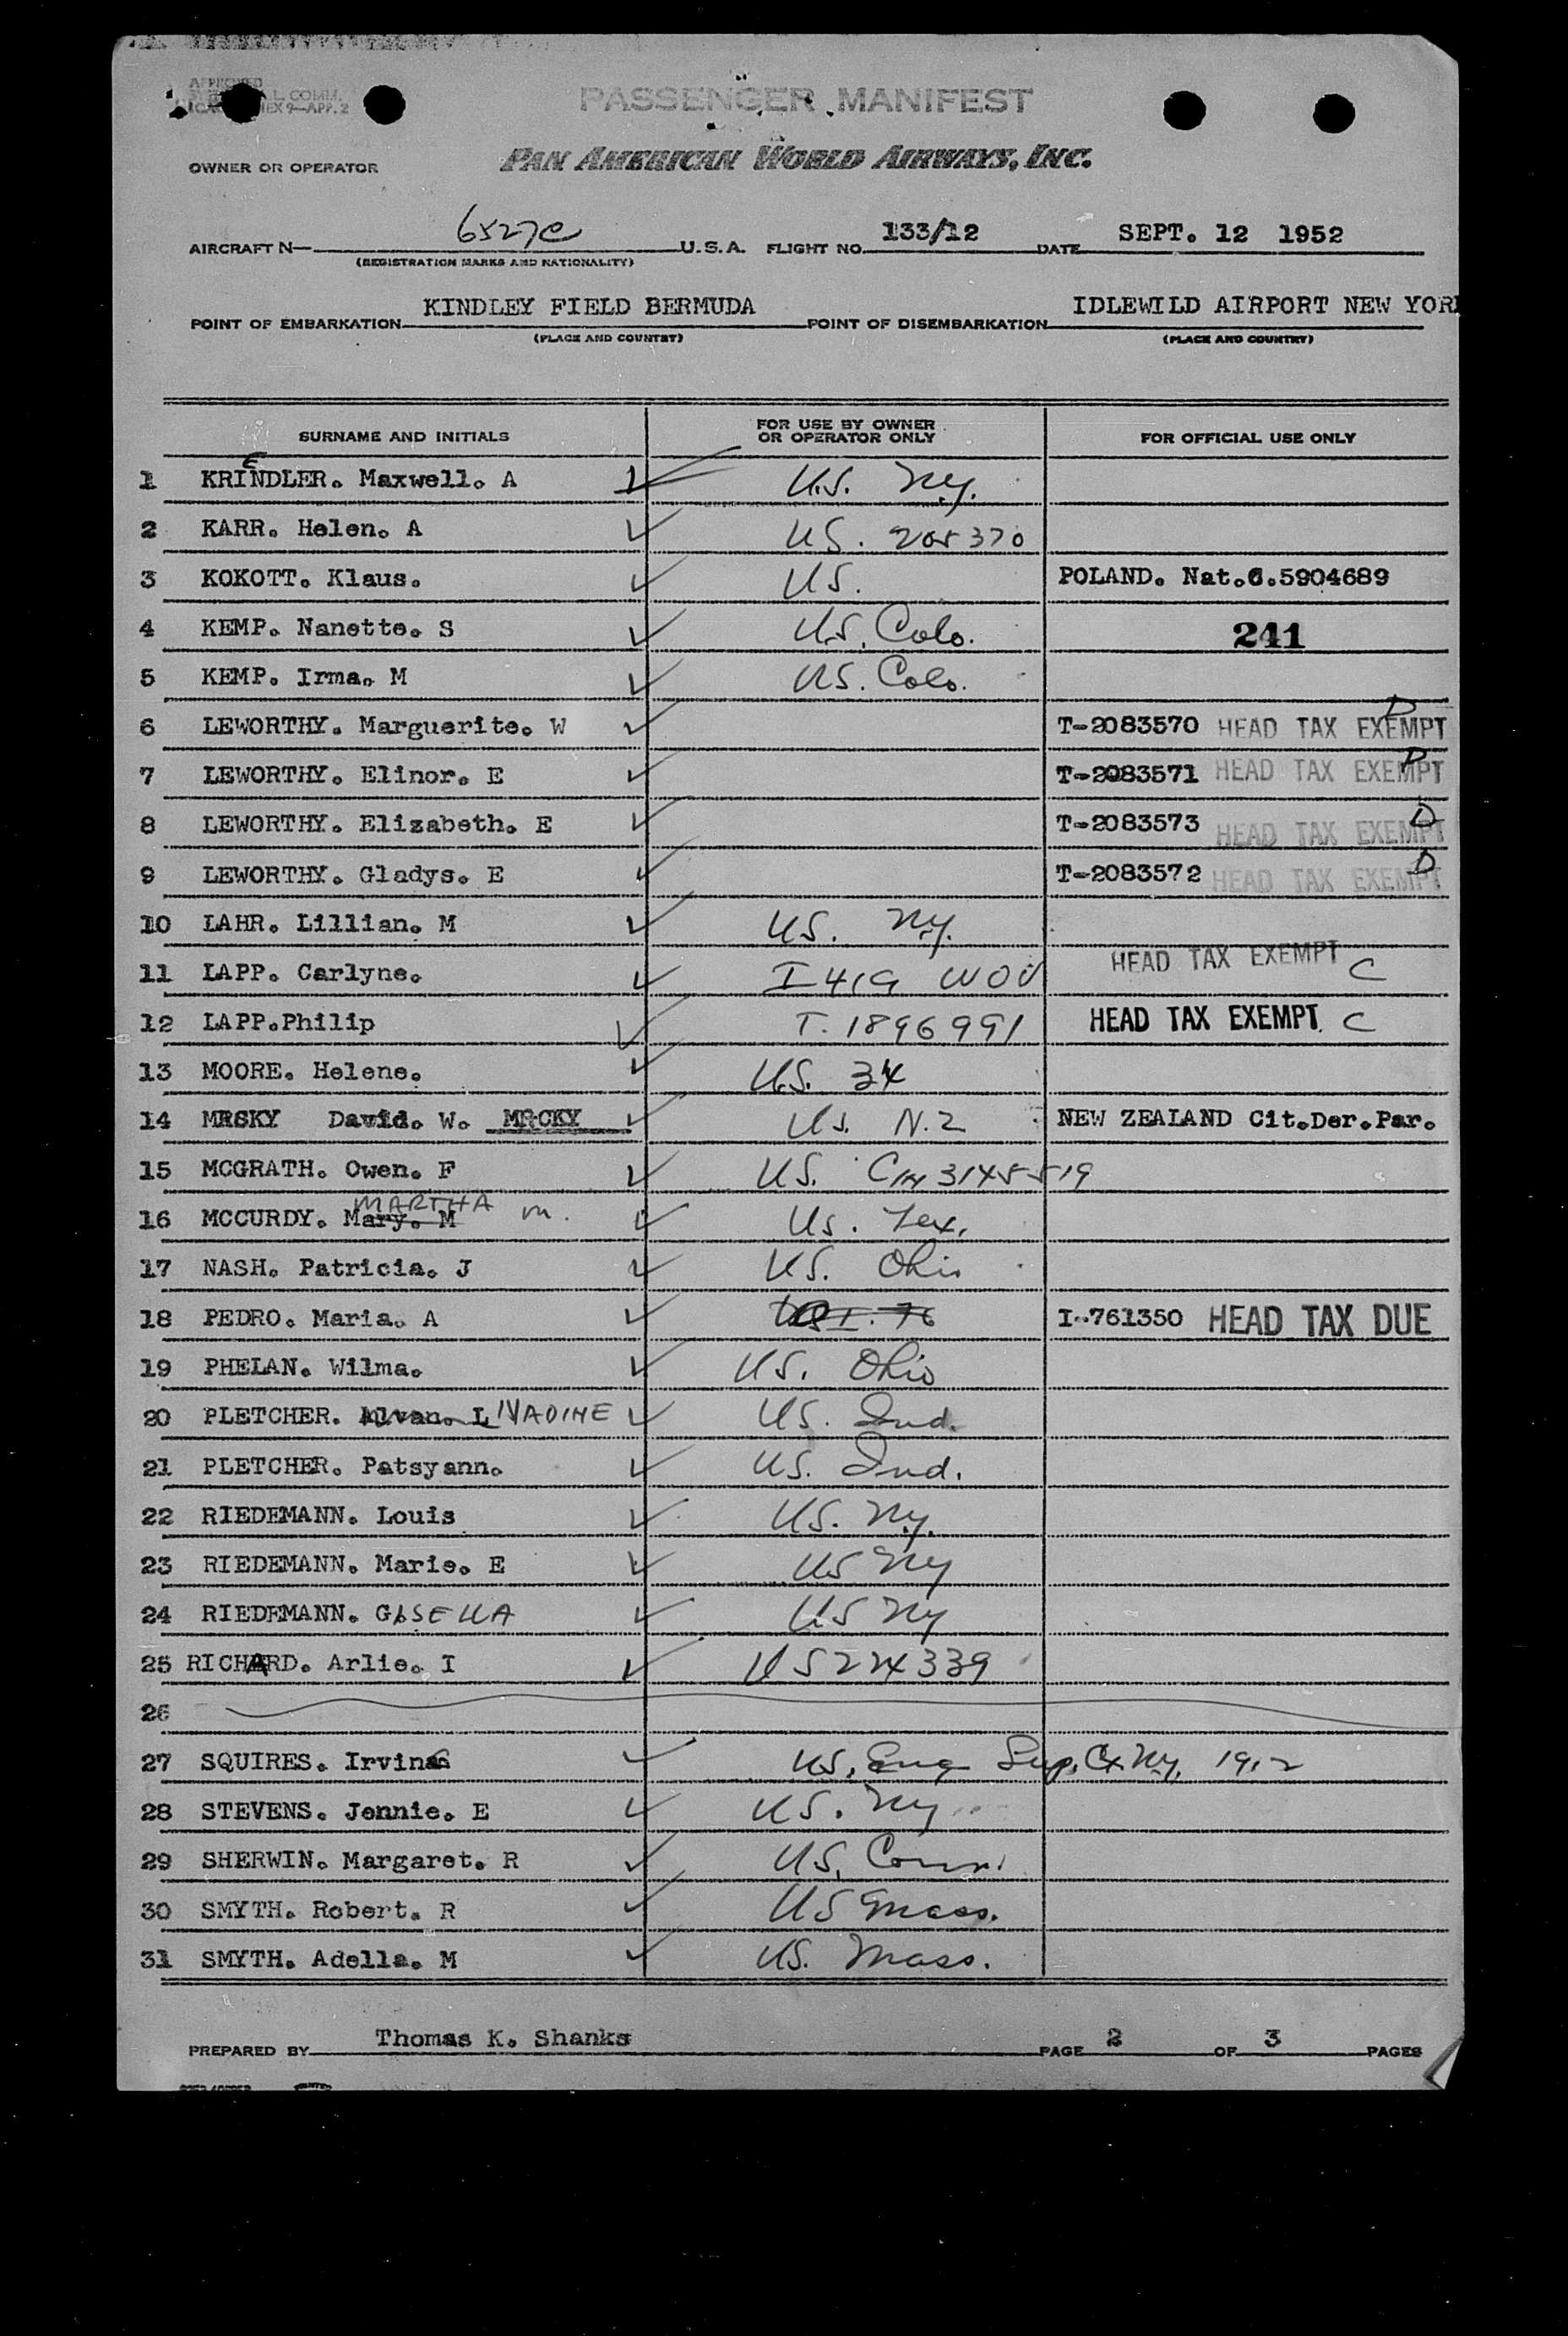 APPROVED
L. COMM.
EX 9—APP. 2
PASSENGER MANIFEST
OWNER OR OPERATOR PAN AMERICAN WORLD AIRWAYS, INC.
AIRCRAFT N— 6527C U.S.A. FLIGHT NO. 133/12 DATE SEPT. 12 1952
(REGISTRATION MARKS AND NATIONALITY)
POINT OF EMBARKATION KINDLEY FIELD BERMUDA POINT OF DISEMBARKATION IDLEWILD AIRPORT NEW YORK
(PLACE AND COUNTRY) (PLACE AND COUNTRY)
SURNAME AND INITIALS FOR USE BY OWNER OR OPERATOR ONLY FOR OFFICIAL USE ONLY
E
1 KRINDLER. Maxwell. A U.S. N.Y.
2 KARR. Helen. A US. 205370
3 KOKOTT. Klaus. US. POLAND. Nat.C.5904689
4 KEMP. Nanette. S U.S. Colo. 241
5 KEMP. Irma. M US. Colo.
6 LEWORTHY. Marguerite. W T-2083570 HEAD TAX EXEMPT D
7 LEWORTHY. Elinor. E T-2083571 HEAD TAX EXEMPT D
8 LEWORTHY. Elizabeth. E T-2083573 HEAD TAX EXEMPT D
9 LEWORTHY. Gladys. E T-2083572 HEAD TAX EXEMPT D
10 LAHR. Lillian. M US. N.Y.
11 LAPP. Carlyne. I 419 WOV HEAD TAX EXEMPT C
12 LAPP.Philip T. 1896991 HEAD TAX EXEMPT C
13 MOORE. Helene. U.S. 34
14 MRSKY David. W. MRCKY US. N.Z NEW ZEALAND Cit.Der.Par.
15 MCGRATH. Owen. F US. 3145519
MARTHA
16 MCCURDY. Mary. M m. US. Tex.
17 NASH. Patricia. J US. Ohio
18 PEDRO. Maria. A I. 76 I-761350 HEAD TAX DUE
19 PHELAN. Wilma. US. Ohio
20 PLETCHER. Alvan. L NADINE US. Ind.
21 PLETCHER. Patsyann. US. Ind.
22 RIEDEMANN. Louis US. N.Y.
23 RIEDEMANN. Marie. E US NY
24 RIEDEMANN. GISELLA US NY
25 RICHARD. Arlie. I US 224339
26
27 SQUIRES. Irving US. Eng Sup. Ct. N.Y. 1912
28 STEVENS. Jennie. E US. NY
29 SHERWIN. Margaret. R US. Conn.
30 SMYTH. Robert. R US Mass.
31 SMYTH. Adella. M US. Mass.
PREPARED BY Thomas K. Shanks PAGE 2 OF 3 PAGES